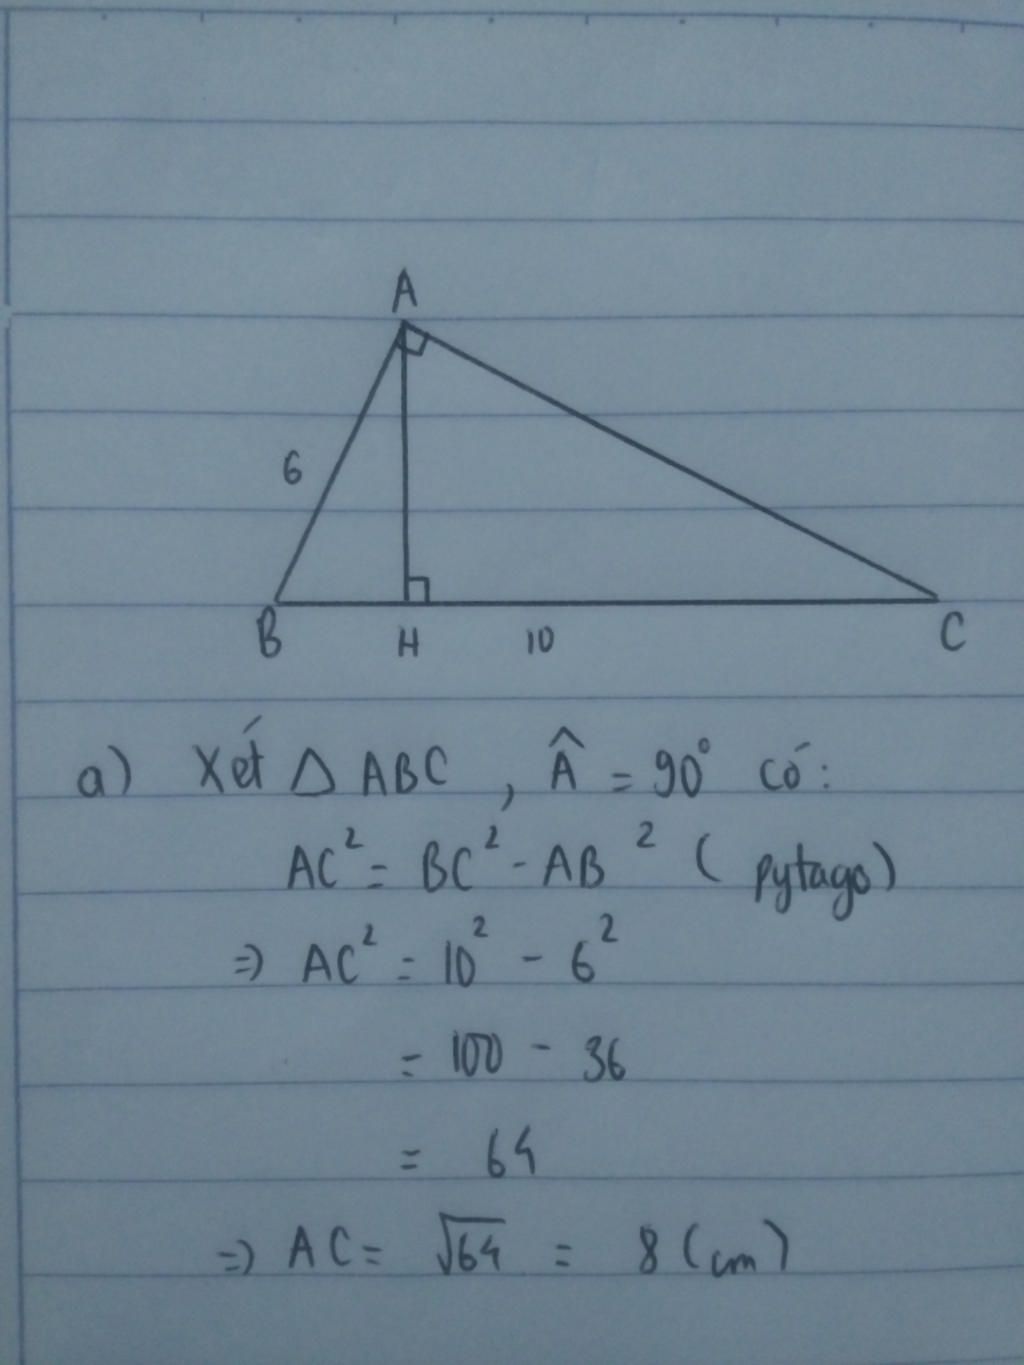 A
6
B H 10 C
a) Xét Δ ABC , Â = 90° có:
AC² = BC² - AB² ( pytago)
=> AC² = 10² - 6²
= 100 - 36
= 64
=> AC = √64 = 8 (cm)